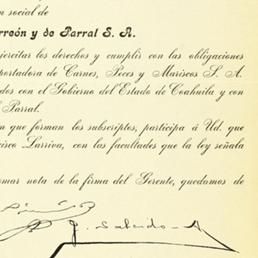 n social de
rreón y de Parral S. A.
ejercitar los derechos y cumplir con las obligaciones
portadora de Carnes, Peces y Mariscos S. A.
dos con el Gobierno del Estado de Coahuila y con
l Parral.
n que forman los subscriptos, participa á Ud. que
cisco Larriva, con las facultades que la ley señala
mar nota de la firma del Gerente, quedamos de
J. Salcido